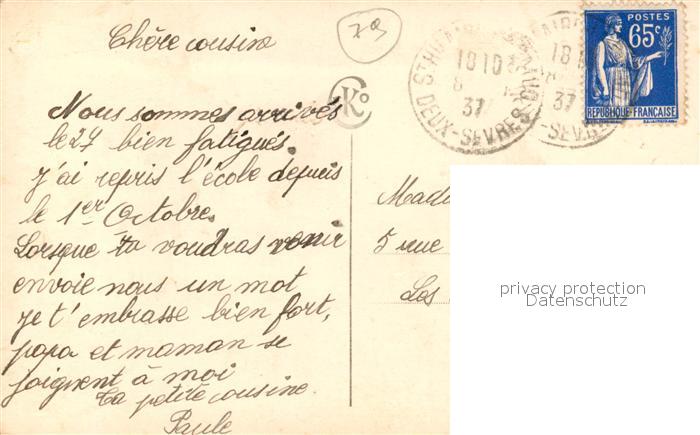 Chère cousine
Nous sommes arrivés
le 27 bien fatigués.
J'ai repris l'école depuis
le 1er Octobre.
Lorsque tu voudras venir
envoie nous un mot
je t'embrasse bien fort,
papa et maman se
joignent à moi
Ta petite cousine.
Paule
79
CKo
ST HILAIRE
18 10
8
37
DEUX-SEVRES
18
37
-SEVRES
POSTES
65c
REPUBLIQUE FRANÇAISE
Mada
5 rue
Los
privacy protection
Datenschutz